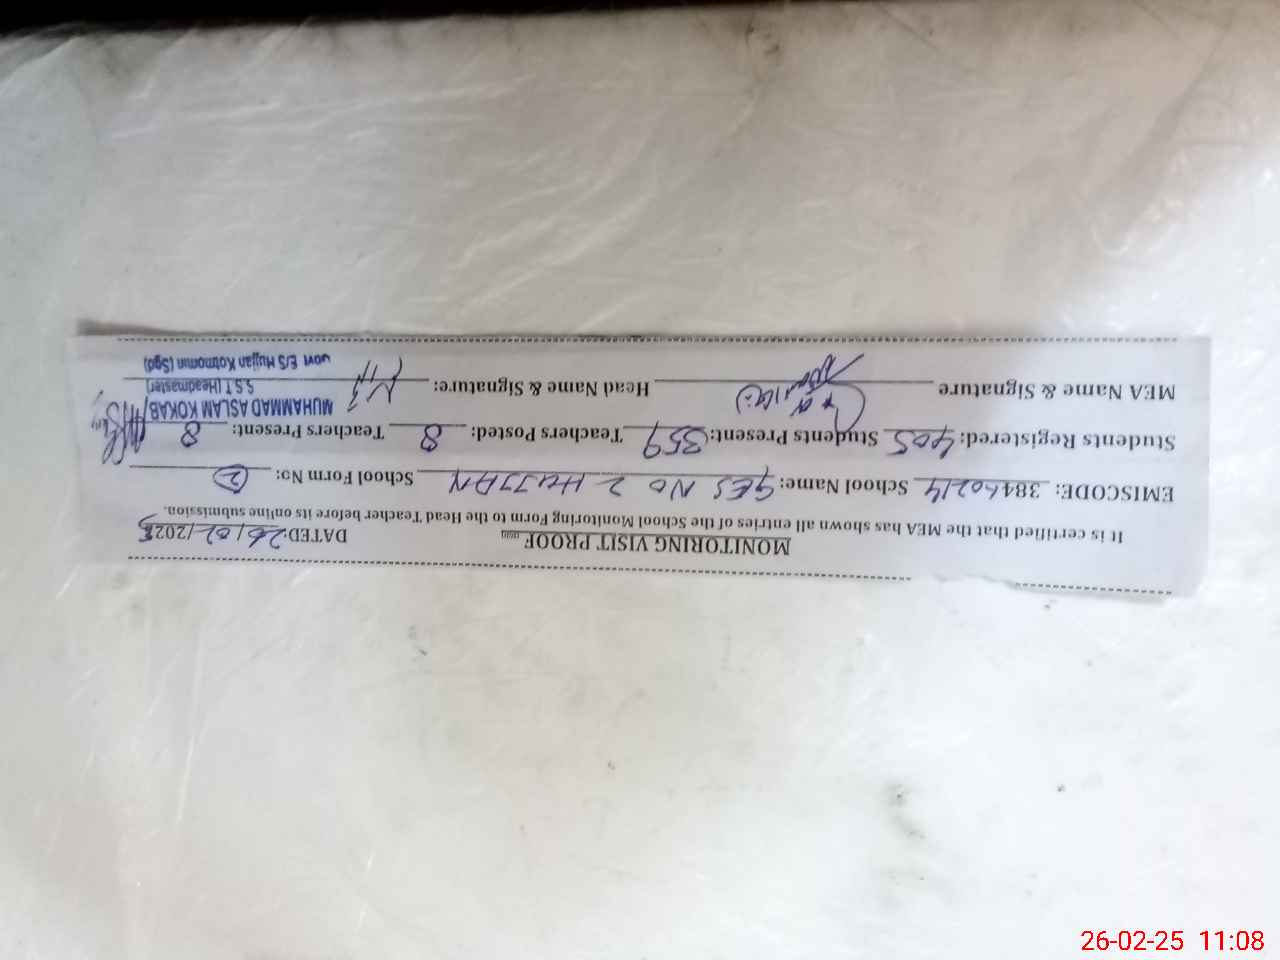 MONITORING VISIT PROOF
DATED: 26/02/2025
It is certified that the MEA has shown all entries of the School Monitoring Form to the Head Teacher before its online submission.
EMISCODE: 38440214 School Name: GES No 2 HUJJAN School Form No: 2
Students Registered: 405 Students Present: 359 Teachers Posted: 8 Teachers Present: 8
MEA Name & Signature Head Name & Signature:
MUHAMMAD ASLAM KOKAB
S.S.T (Headmaster)
Govt E/S Hujjan Kotmomin (Sgd)
26-02-25 11:08